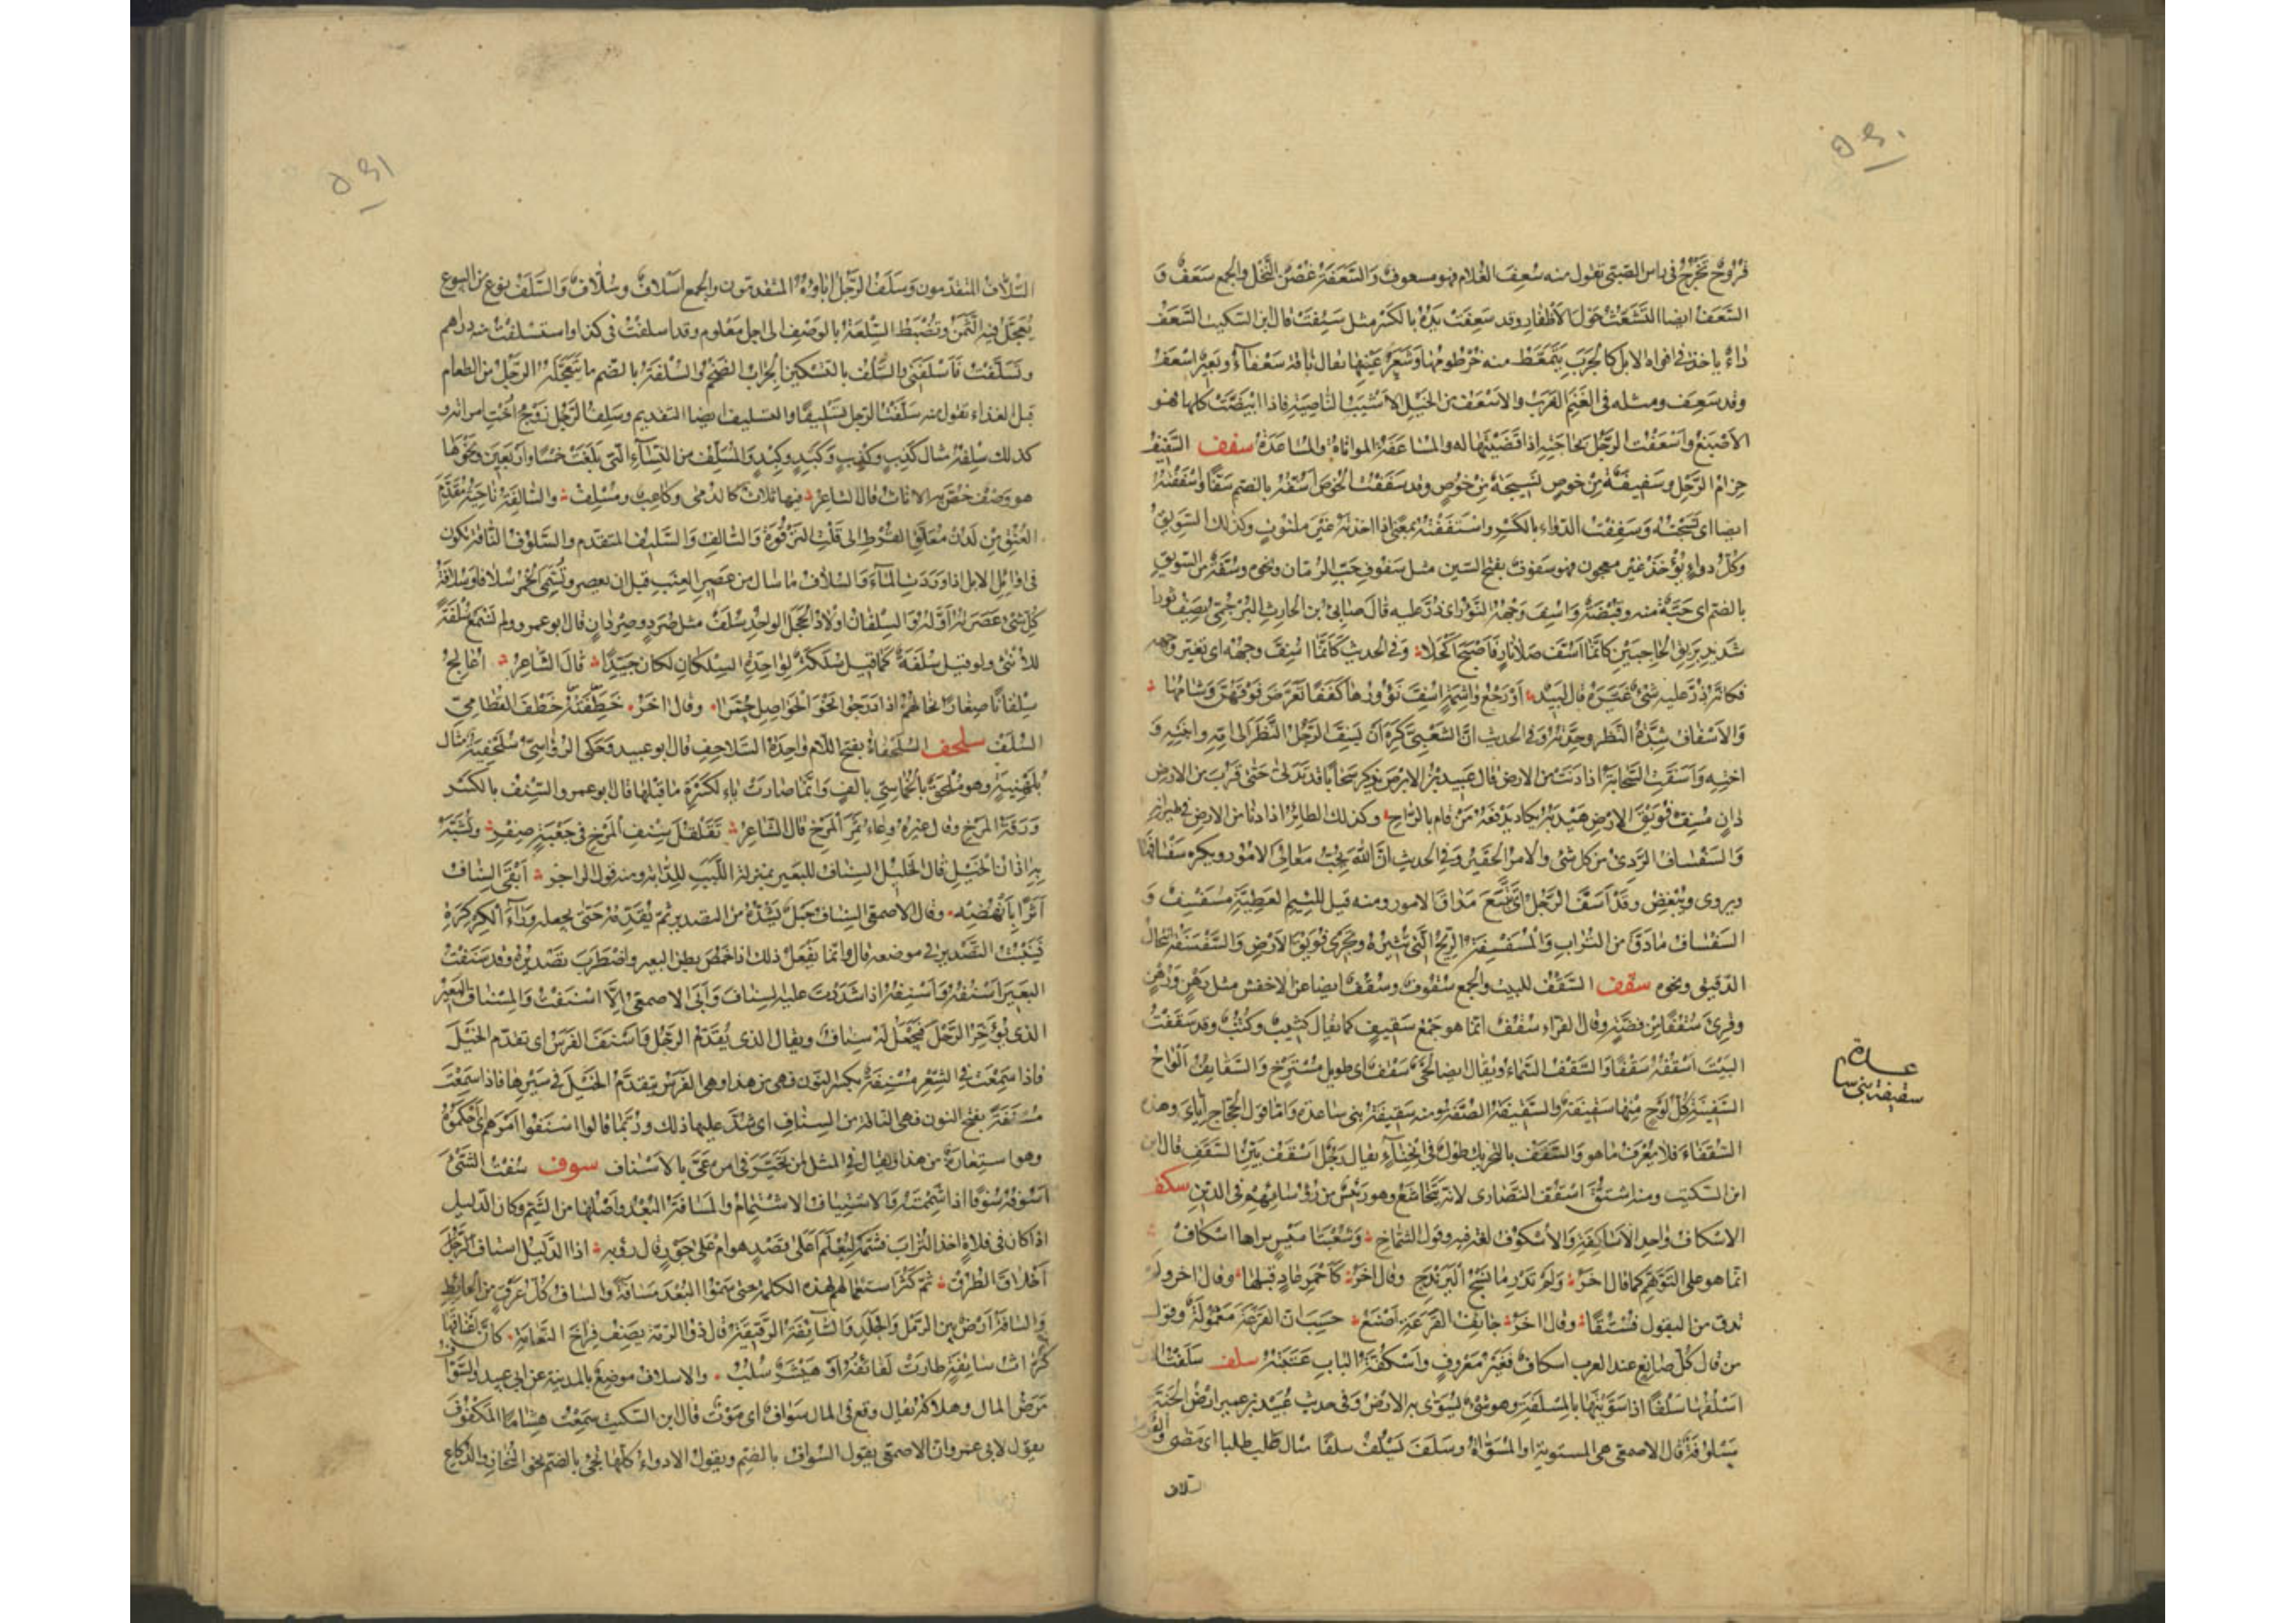 قُرُوحٌ تَخْرُجُ فى راس الصّبىّ تقول منه سُعِفَ الغلام فهو مسعوفٌ وَالسَّعَفَةُ غُصْنُ النَّخْلِ والجمع سَعَفٌ وَ
السَّعَفُ ايضا التَّشَعُّثُ حَوْلَ الأَظْفَارِ وقد سَعِفَتْ يَدُهُ بالكَسْرِ مثل سَئِفَتْ قال ابن السّكيت السَّعَفُ
داءٌ ياخذ فى افواه الابل كالجَرَبِ يَتَمَعَّطُ منه خُرْطُومُهَا وَشَعَرُ عَيْنِهَا يقال ناقة سَعْفَآءُ وبَعِيرٌ اَسْعَفُ
وقد سَعِفَ ومثله فى الغَنَمِ الغَرَبُ والاَسْعَفُ من الخَيْلِ الاَشْيَبُ النَّاصِيَةِ فاذا ابْيَضَّتْ كلها فهو
الاَصْبَغُ وَاَسْعَفْتُ الرَّجُلَ بحَاجَتِهِ اذا قَضَيْتَهَا له والمُسَاعَفَةُ المواتاةُ والمُسَاعَدَةُ سفف السَّفِيفُ
حِزَامُ الرَّحْلِ وسَفِيفَةٌ مِنْ خُوصٍ نَسِيجَةٌ مِنْ خُوصٍ وقد سَفَفْتُ الخُوصَ اَسُفُّهُ بالضّم سَفًّا وَاَسْفَفْتُهُ
ايضا اى نَسَجْتُهُ وَسَفِفْتُ الدّواء بالكَسْرِ واسْتَفَفْتُهُ بمعنًى اذا اخذته غَيْرَ ملتوتٍ وكذلك السَّوِيقُ
وكلّ دواءٍ يُؤْخَذُ غير معجون فهو سَفوفٌ بفتح السّين مثل سَفُوفِ حَبِّ الرُّمَّانِ ونحوه وسُفَّةٌ من السَّوِيقِ
بالضّم اى حَبَّةٌ منه وقَبْضَةٌ وَاُسِفَّ وَجْهُهُ النَّؤُورَ اى ذُرَّ عليه قالَ ضابئُ بن الحارثِ البُرْجُمِىّ يَصِفُ ثورا
شَدِيدُ بَرِيقِ الحَاجِبَيْنِ كَانَّمَا اُسِفَّ صَلَا نَارٍ فَاَصْبَحَ اَكْحَلَا وَفى الحديث كَاَنَّمَا اُسِفَّ وجْهُهُ اى تغيّر وجهه
فكانّه ذُرَّ عليه شئٌ غَيَّرَهُ قال لبيد اَوْ رَجْعُ وَاشِمَةٍ اُسِفَّ نَؤُورُهَا كِفَفًا تَعَرَّضَ فَوْقَهُنَّ وِشَامُهَا
وَالاِسْفَافُ شِدَّةُ النَّظَرِ وحِدَّتُهُ وفى الحديث انَّ الشَّعْبِىَّ كَرِهَ اَنْ يُسِفَّ الرَّجُلُ النَّظَرَ الى امّه وابنته وَ
اخته وَاَسَفَّتِ السَّحَابَةُ اذا دَنَتْ من الارض قال عَبِيدُ بْنُ الابرص يذكر سَحَابًا قد تَدَلَّى حَتّى قَرُبَ من الارض
دَانٍ مُسِفٍّ فُوَيْقَ الاَرْضِ هَيْدَبُهُ يكادُ يَدْفَعُهُ مَنْ قامَ بالرَّاحِ وكذلك الطائِرُ اذا دنا من الارض فى طيرانه
وَالسَّفْسَافُ الرَّدِئُ من كل شئ والامرُ الحَقِيرُ وفى الحديث انّ اللّٰهَ يُحِبُّ مَعَالِىَ الاُمُورِ ويكره سَفْسَافَهَا
ويروى ويُبْغِضُ وقَدْ اَسَفَّ الرَّجُلُ اى تَتَبَّعَ مَدَاقَّ الامور ومنه قيل للّئِيمِ العَطِيَّةِ مُسَفْسِفٌ وَ
السَّفْسَافُ مَا دَقَّ من التُّرَابِ وَالمُسَفْسِفَةُ الرِّيحُ الَّتى تُثِيرُهُ وتَجْرِى فُوَيْقَ الاَرْضِ وَالسَّفْسَفَةُ انتخال
الدّقيق ونحوه سقف السَّقْفُ للبيت والجمع سُقُوفٌ وسُقُفٌ ايضا عن الاخفش مثل رَهْنٍ ورُهُنٍ
وقُرِئَ سُقُفًا مِنْ فِضَّةٍ وقال الفرّاء سُقُفٌ انّما هو جَمْعُ سَقِيفٍ كما يقال كثِيبٌ وكُثُبٌ وقد سَقَفْتُ
البَيْتَ اَسْقُفُهُ سَقْفًا وَالسَّقْفُ السَّمَاءُ ويُقَال ايضا لَحْىٌ سَقْفٌ اى طويل مُسْتَرْخٍ وَالسَّقَايِفُ اَلْوَاحُ
السَّفِينَةِ كلّ لَوْحٍ مِنْهَا سَقِيفَةٌ وَالسَّقِيفَةُ الصُّفَّةُ ومنه سَقِيفَةُ بنى ساعدة وَامّا قول الحجّاج ايّاىَ وهذه
السُّقَفَاءَ فلا يُعْرَفُ ما هو وَالسَّقَفُ بالتّحريك طولٌ فى انْحِنَآءٍ يقال رَجُلٌ اَسْقَفُ بَيِّنُ السَّقَفِ قال
ابن السّكيت ومنه اشتُقَّ اُسْقُفُّ النَّصَارى لانه يَتَخَاشَعُ وهو رَئِيسٌ من رُؤَسَائِهِمْ فى الدّينِ سكف
الاسْكَافُ وَاحِدُ الاَسَاكِفَةِ وَالاُسْكُوفُ لغة فيه وقول الشّمّاخ وَشُعْبَتَا مَيْسٍ بَرَاها اِسْكَافُ
انّما هو على التَّوَهُّمِ كما قال اٰخَرُ وَلَمْ تَدْرِ ما نَسْجُ الْيَرَنْدَجِ وقال اٰخَرُ كَاَحْمَرِ عَادٍ قبلها وقال اٰخر ولم
تذق من البقول فُسْتُقًا وقال اٰخرُ جَائِفُ القَرْعَةِ اَصْنَعُ حَسِبَ انّ القَرْعَةَ مَعْمُولَةٌ وقول
من قال كُلُّ صَانِعٍ عند العرب اسكافٌ فغَيْرُ مَعْرُوفٍ وَاُسْكُفَّةُ البَابِ عَتَبَتُهُ سلف سَلَفْتُ
اَسْلُفُهَا سَلْفًا اذا سَوَّيْتَهَا بالمِسْلَفَةِ وهو شئٌ يُسَوّى به الارْضُ وفى حديث عُبَيْدِ بن عمير ارْضُ الجَنّةِ
مَسْلُوفَةٌ قال الاصمعى هى المستوية او المُسَوَّاةُ وسَلَفَ يَسْلُفُ سلفًا مثال طَلَبَ طلبا اى مَضَى
السّلاف
سقيفة بنى ساعدة
السُّلَّافُ المتقدّمون وَسَلَفُ الرَّجُلِ اٰبَاؤُهُ المتقدّمون والجمع اَسْلَافٌ وسُلَّافٌ وَالسَّلَفُ نوع من البيوع
يُعَجَّلُ فيه الثَّمَنُ وتُضْبَطُ السِّلْعَةُ بالوَصْفِ الى اجل مَعْلوم وقد اسلفتُ فى كذا واستسلفتُ منه دراهم
وتَسَلَّفْتُ فَاَسْلَفَنِى والسَّلْفُ بالتّسكين الجِرَابُ الضَّخْمُ والسُّلْفَةُ بالضّم ما يَتَعَجَّلُهُ الرَّجُلُ من الطعام
قبل الغداء تقول منه سَلَّفْتُ الرّجل تَسْلِيفًا والتسليف ايضا التقديم وسَلِفُ الرَّجُلِ زَوْجُ اُخْتِ امراته و
كذلك سِلْفُهُ مثال كَذِبٍ وكِذْبٍ وَكَبِدٍ وكِبْدٍ والمُسْلِفُ من النِّسَآءِ الّتى بَلَغَتْ خَمْسًا وَاَرْبَعِينَ وَنَحْوَهَا
هو وَصْفٌ خُصَّ به الاناث قال الشاعرُ فيها ثَلاثٌ كالدُّمَى وكاعِبٌ ومُسْلِفُ والسَّالِفَةُ نَاحِيَةُ مُقَدَّمِ
العُنُقِ مِنْ لَدُنْ مُعَلَّقِ القُرْطِ الى قَلْتِ التَّرْقُوَةِ وَالسَّالِفُ وَالسَّلِيفُ المتقدم والسَّلوف النّاقة تكون
فى اوائِلِ الابل اذا وَرَدَتِ المَآءَ وَالسُّلافُ مَا سَالَ من عَصِيرِ العِنَبِ قبل ان يعصر وتُسَمّى الخَمْرُ سُلافا وَسُلَافَةُ
كُلِّ شئ عَصَرْتَهُ اَوَّلُهُ وَالسِّلْفَانُ اَوْلَادُ الحَجَلِ الواحِدُ سُلَفٌ مثل صُرَدٍ وصِرْدانٍ قال ابو عمرو ولم نَسْمَعْ سُلَفَةً
للاُنْثى ولو قيل سُلَفَةٌ كَمَا قيل سُلَكَةٌ لِوَاحِدَةِ السِّلْكَانِ لكان جَيِّدًا قالَ الشَّاعِرُ اُعَالِجُ
سِلْفَانًا صِغَارًا تخالُهُمْ اذا دَرَجُوا بُجْرَ الحَوَاصِلِ حُمَّرَا وقال اٰخَرُ خَطِفْنَهُ خَطْفَ القُطَامِىِّ
السُّلَفْ سلحف السُّلَحْفَاةُ بفتح اللّام وَاحِدَةُ السَّلاحِفِ قال ابو عبيد وحَكَى الرُّؤَاسِىُّ سُلَحْفِيَةٌ مثال
بُلَهْنِيَةٍ وهو مُلْحَقٌ بالخُمَاسِىِّ بالفٍ وَانَّمَا صارت ياء لكَسْرَةِ مَا قَبْلَهَا قال ابو عمرو السِّنْفُ بالكَسْرِ
وَرَقَةُ المَرْخِ وقال غيرهُ وِعَاءُ ثَمَرِ المَرْخِ قال الشّاعرُ تَقَلْقُلَ سِنْفِ المَرْخِ فى جَعْبَةٍ صِفْرِ وتُشَبَّهُ
بِهِ اٰذَانُ الخَيْلِ قال الخليلُ السِّنافُ للبَعير بمنزلة اللَّبَبِ للدّابّة ومنه قول الرّاجز اَبْقَى السِّنَافُ
اَثَرًا بِاَنْهُضِهْ وقال الاصمعى السِّنافُ حَبْلٌ يَشُدُّهُ من التصدير ثمّ يُقَدِّمُهُ حَتّى يجعله وَرَآءَ الكِرْكِرَةِ
فَيَثْبُتُ التَّصْدِيرُ فى موضعه قال وانّما يُفْعَلُ ذلك اذا خَمُصَ بطن البعير واضْطَرَبَ تَصْدِيرُهُ وقد سَنَفْتُ
البَعِيرَ اَسْنُفُهُ وَاَسْنِفُهُ اذا شَدَدْتَ عليه السِنافَ وَاَبَى الاصمعى اِلَّا اَسْنَفْتُ وَالمِسْنَافُ البَعِيرُ
الذى يُؤَخِّرُ الرَّحْلَ فيُجْعَلُ لَهُ سِنَافٌ ويقال الذى يُقَدِّمُ الرَّحْلَ وَاَسْنَفَ الفَرَسُ اى تقدّم الخَيْلَ
فاذا سَمِعْتَ فى الشِّعْرِ مُسْنِفَةٌ بكَسْرِ النّون فهى من هذا وهى الفَرَسُ يتقدّم الخَيْلَ فى سَيْرِهَا فاذا سَمِعْتَ
مُسْنَفَةً بفتح النون فهى النّاقة من السِّنافِ اى شُدَّ عليها ذلك ورُبَّمَا قالوا اَسْنَفُوا اَمْرَهُمْ اى اَحْكَمُوْهُ
وهو استعارة من هذا ويُقَال فى المثل لمن تَحَيَّرَ فى امره عَىَّ بالاسْنَاف سوف سُفْتُ الشَّئَ
اَسُوفُهُ سَوْفًا اذا شَمِمْتَهُ وَالاسْتِيَافُ الاشْتِمَامُ والمَسَافَةُ البُعْدُ وَاَصْلُهَا من الشَّمِّ وكان الدّليل
اذا كان فى فلاةٍ اخذ التُّرَابَ فشَمَّهُ لِيَعْلَمَ اَعَلى قَصْدٍ هو ام عَلى جَوْرٍ قال رؤبه اذا الدَّلِيلُ اسْتَافَ
اَخْلَاقَ الطُّرُقْ ثمّ كَثُرَ استعمالهم لهذه الكلمة حتى سَمَّوُا البُعْدَ مَسَافَةً والسّاف كُلّ عَرَقٍ من الحائِطِ
وَالسّافَةُ اَرْضٌ بين الرَّمْلِ وَالجَلَدِ وَالسَّآئِفَةُ الرَّقِيقَةُ قال ذو الرمّة يَصِفُ فِرَاخَ النَّعَامَةِ كَاَنَّ اَعْنَاقَهَا
كُرَّاثُ سَائِفَةٍ طارَتْ لَفَائِفُهُ اَوْ هَيْشَرٌ سُلُبُ والاسواف موضعٌ بالمدينة عن ابى عبيد والسَّوَافُ
مَرَضُ المال وهلاكُهُ يقال وقع فى المال سَوَافٌ اى مَوْتٌ قال ابن السّكيت سَمِعْتُ هِشَامًا المَكْفُوفَ
يقول لابى عمرو انّ الاصمعى يقول السُّوافُ بالضّم ويقول الادواءُ كلّها تَجِئُ بالضّم نحو النُّحَازِ وَالدُّكَاعِ